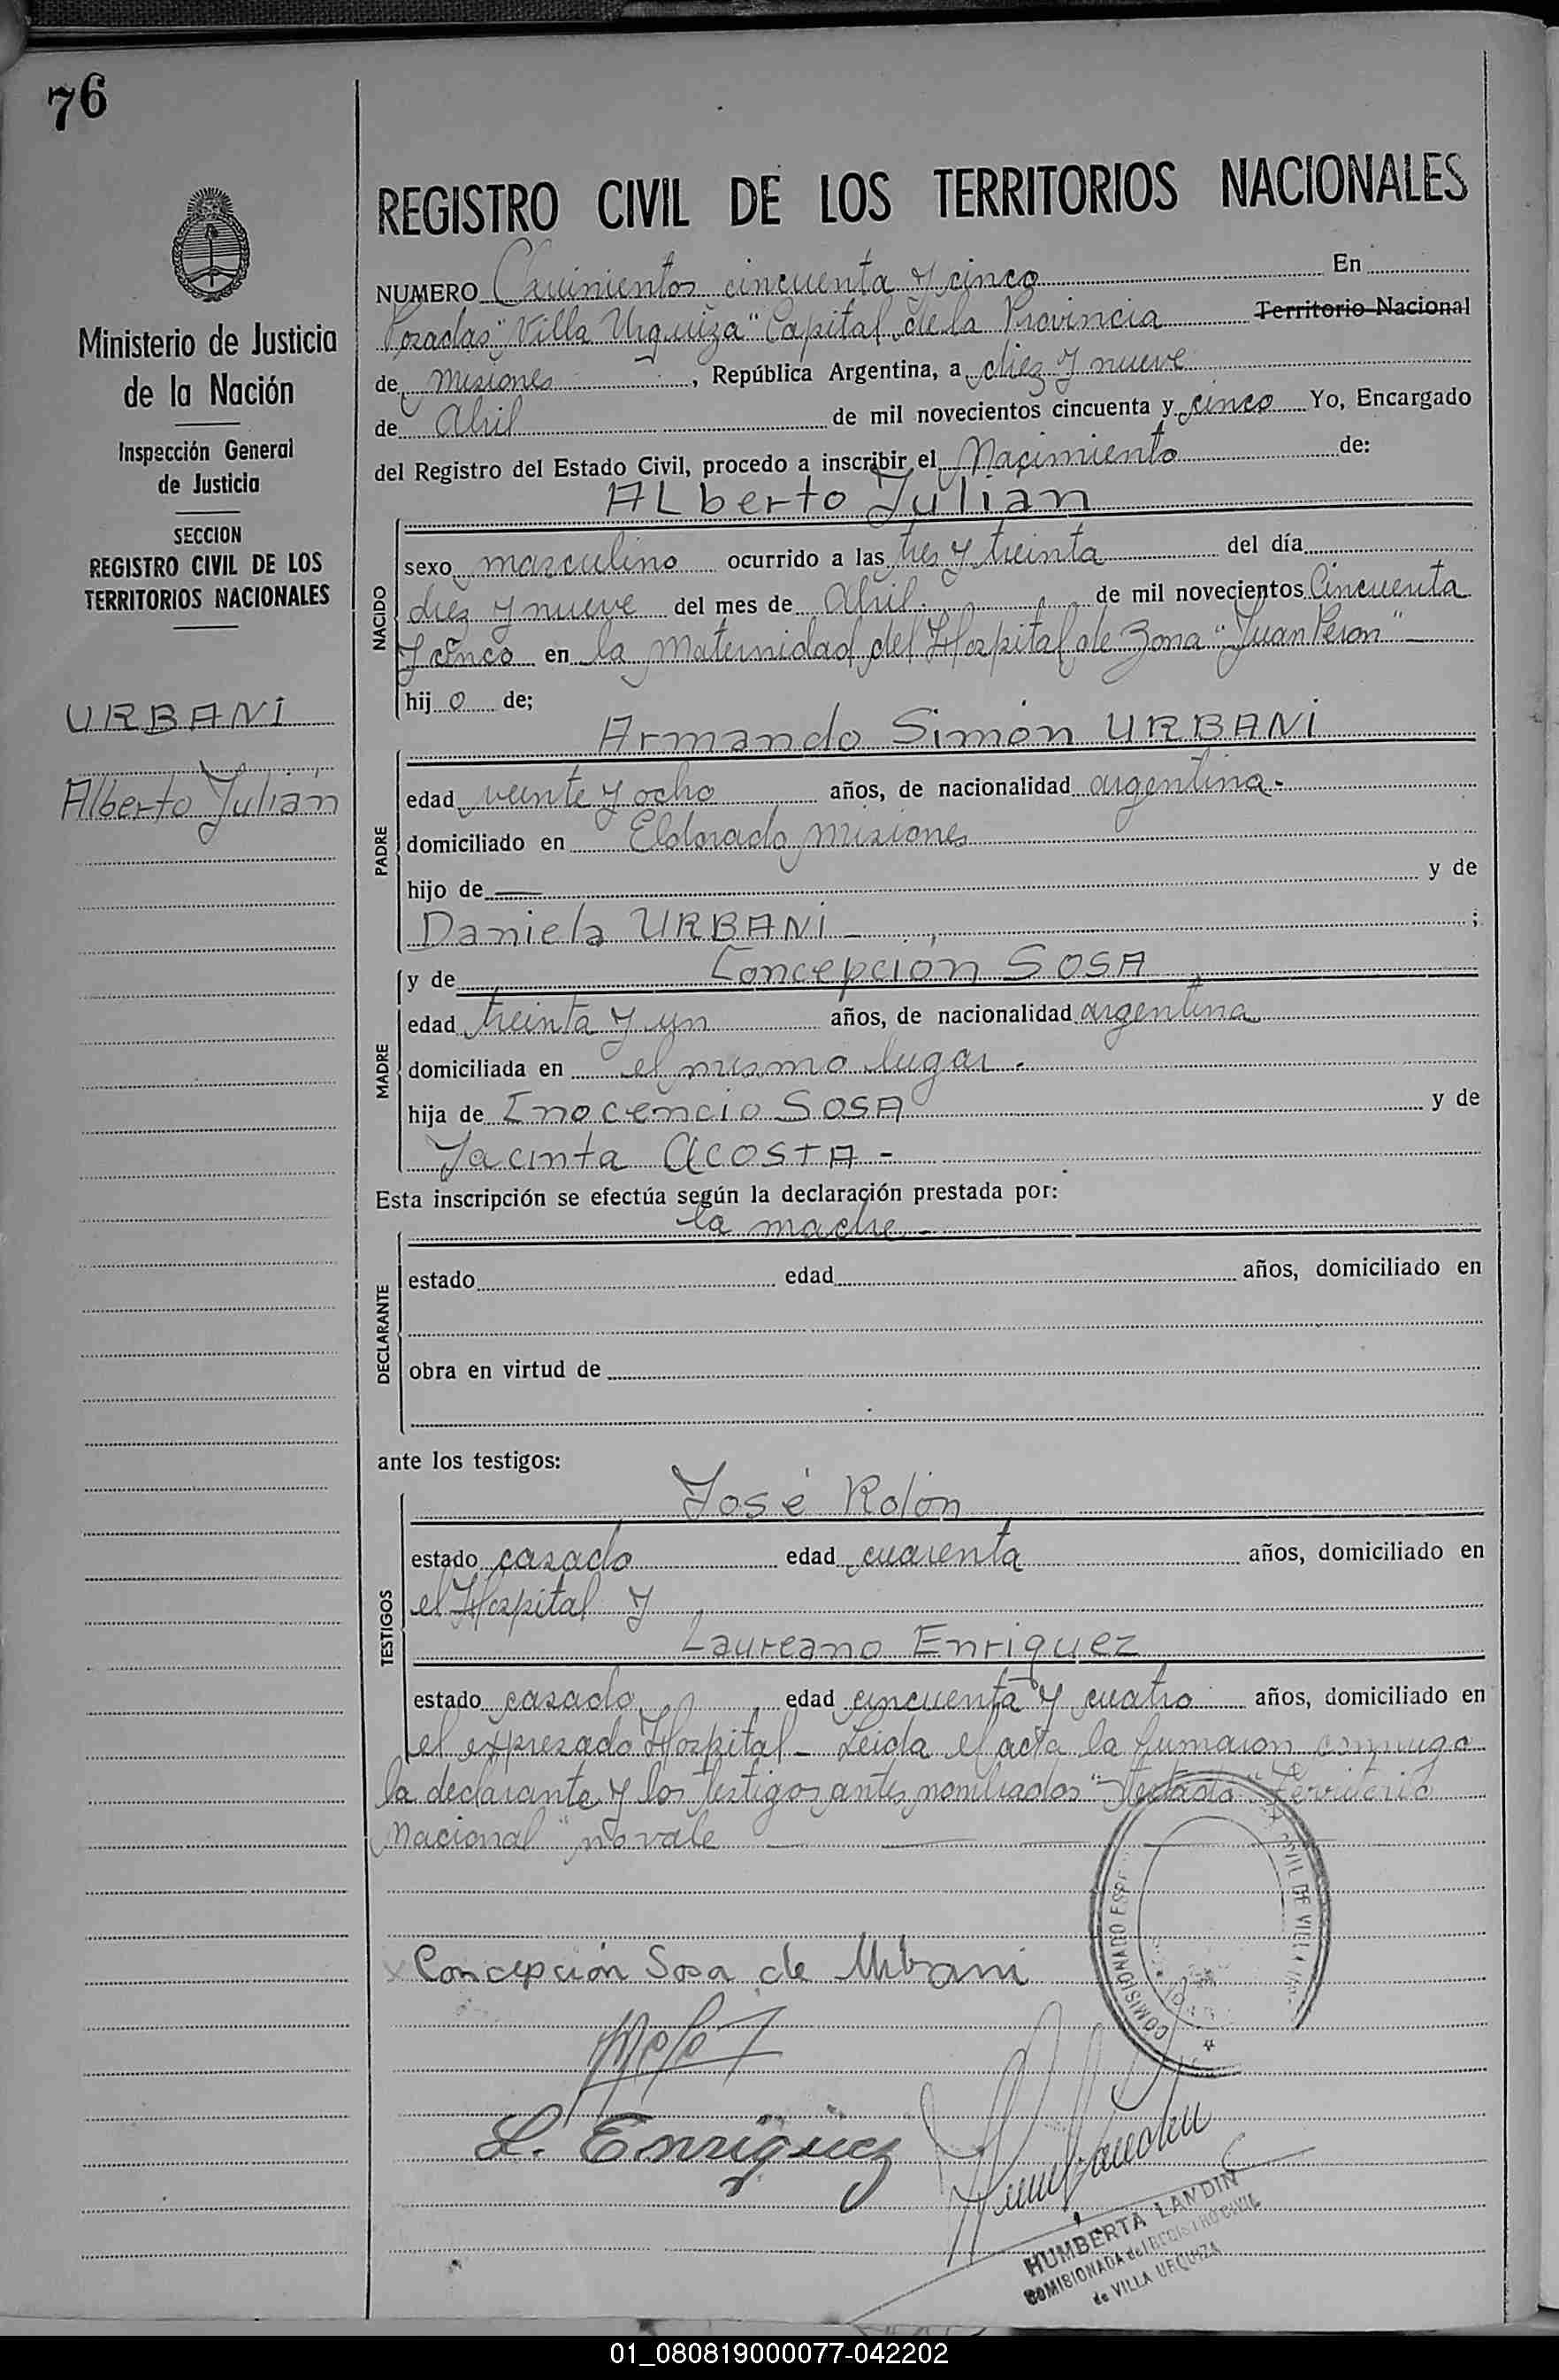 76
Ministerio de Justicia
de la Nación
Inspección General
de Justicia
SECCION
REGISTRO CIVIL DE LOS
TERRITORIOS NACIONALES
URBANI
Alberto Julián
REGISTRO CIVIL DE LOS TERRITORIOS NACIONALES
NUMERO Quinientos cincuenta y cinco En
Posadas "Villa Urquiza" Capital de la Provincia Territorio Nacional
de Misiones, República Argentina, a diez y nueve
de Abril de mil novecientos cincuenta y cinco Yo, Encargado
del Registro del Estado Civil, procedo a inscribir el Nacimiento de:
ALberto Julián
NACIDO
sexo masculino ocurrido a las tres y treinta del día
diez y nueve del mes de Abril de mil novecientos Cincuenta
y cinco en la Maternidad del Hospital de Zona "Juan Peron"
hijo de;
Armando Simón URBANI
PADRE
edad veinte y ocho años, de nacionalidad argentina.
domiciliado en Eldorado, Misiones
hijo de — y de
Daniela URBANI ;
y de Concepción SOSA
MADRE
edad treinta y un años, de nacionalidad argentina
domiciliada en el mismo lugar.
hija de Inocencio SOSA y de
Jacinta ACOSTA -
Esta inscripción se efectúa según la declaración prestada por:
la madre -
DECLARANTE
estado edad años, domiciliado en
obra en virtud de
ante los testigos:
José Rolón
TESTIGOS
estado casado edad cuarenta años, domiciliado en
el Hospital y
Laureano Enriquez
estado casado edad cincuenta y cuatro años, domiciliado en
el expresado Hospital - Leida el acta la firmaron conmigo
la declarante y los testigos antes nombrados - Testado "Territorio
Nacional" no vale
Concepción Sosa de Urbani
L. Enriquez
COMISIONADO
HUMBERTA LANDIN
COMISIONADA del REGISTRO CIVIL
de VILLA URQUIZA
01_080819000077-042202